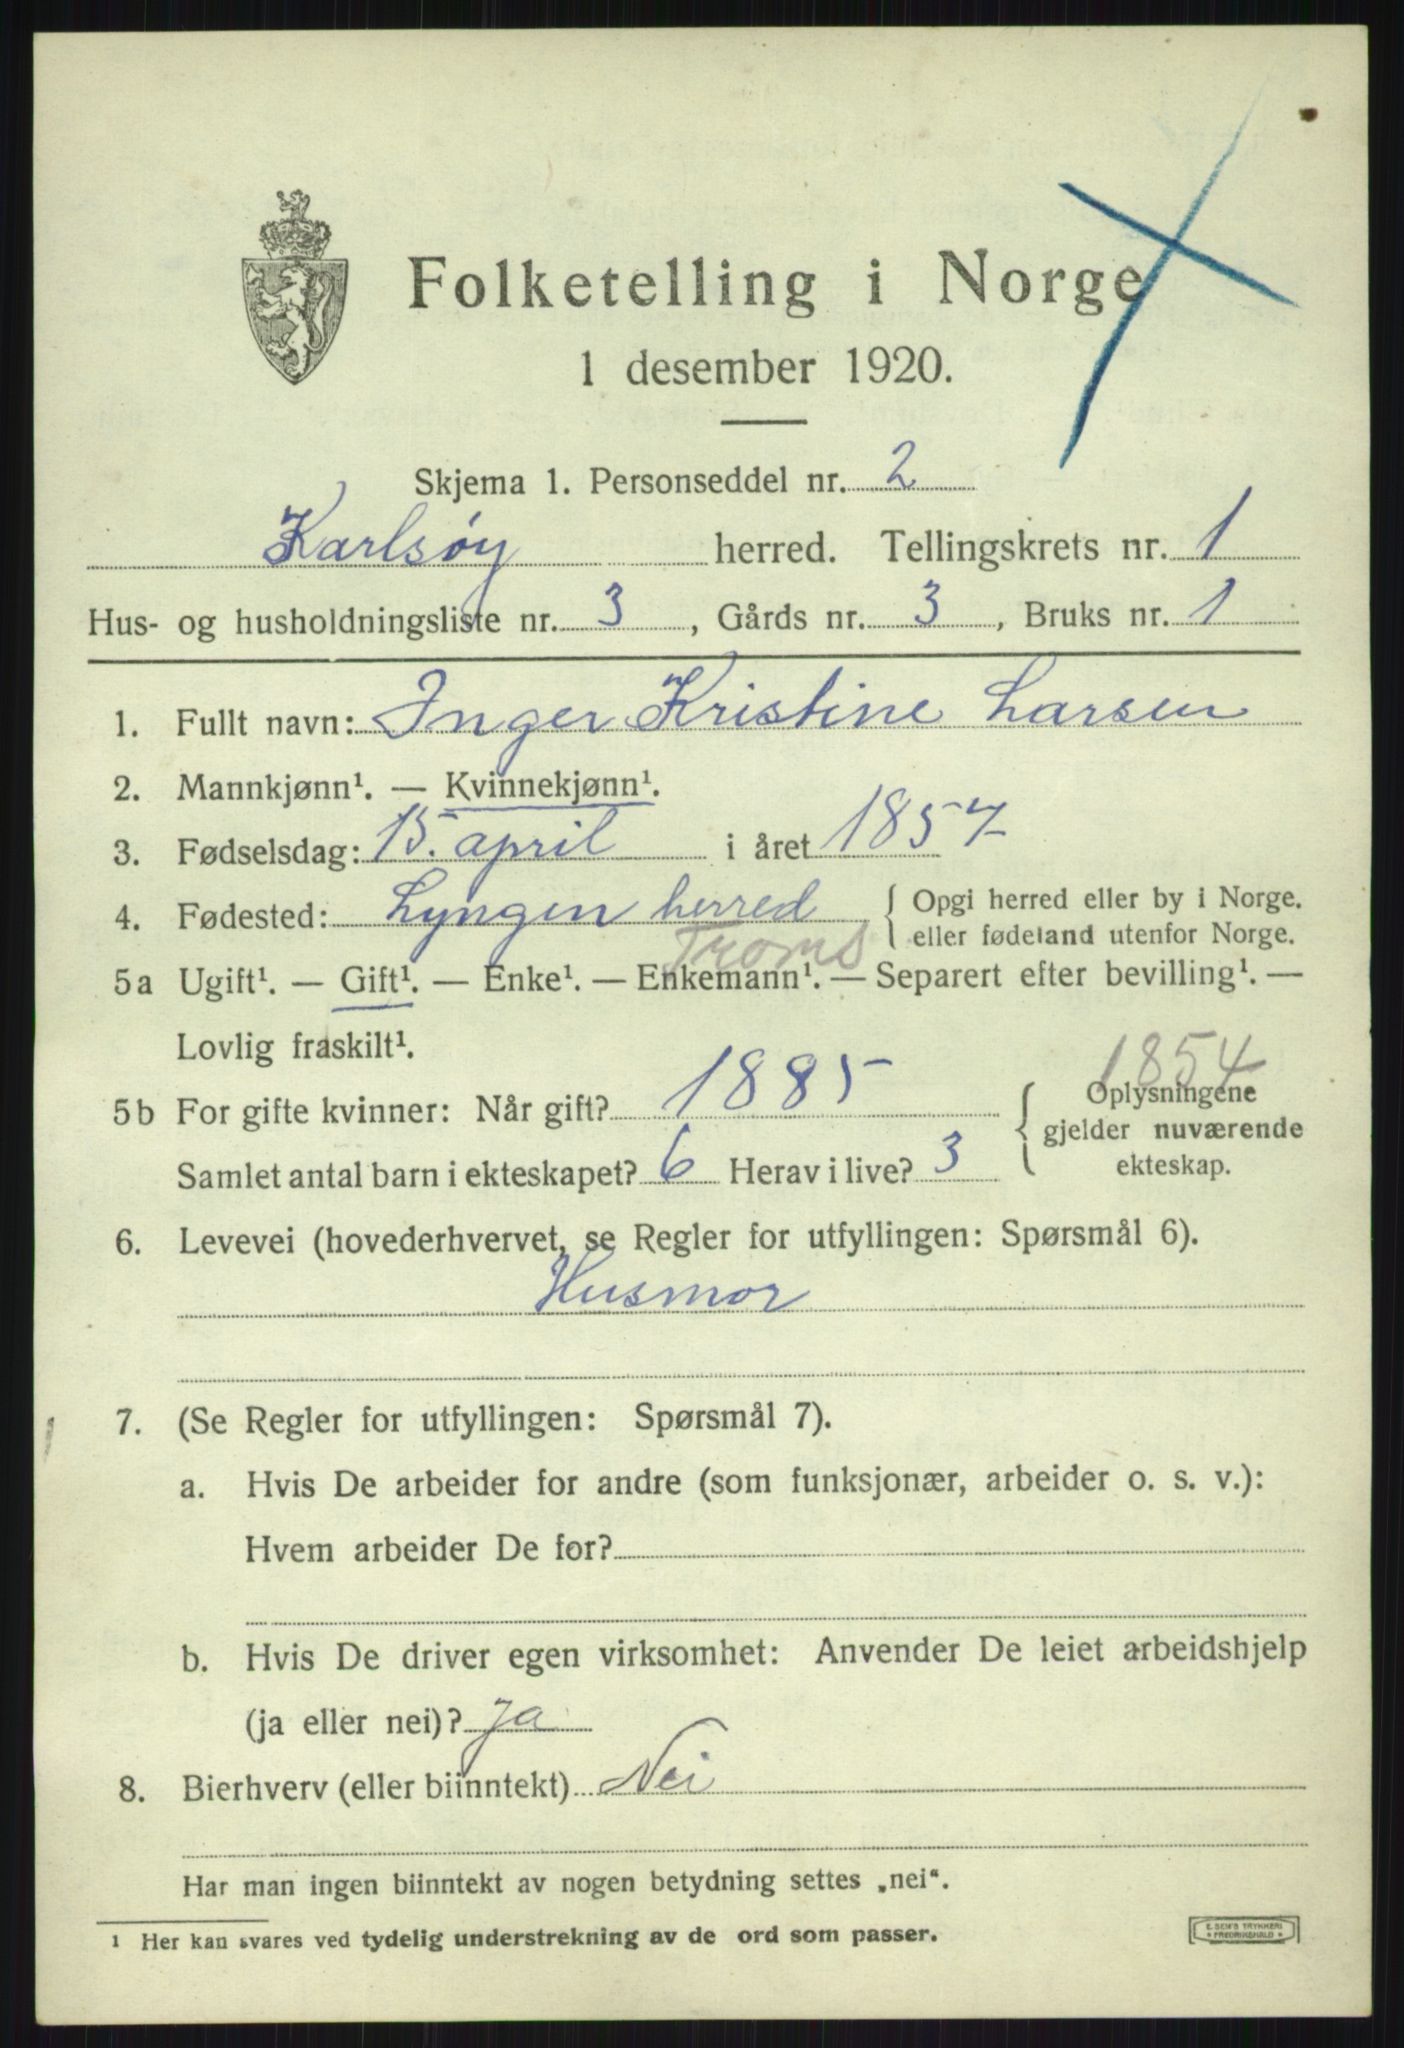 Folketelling i Norge
1 desember 1920.
Skjema 1. Personseddel nr. 2
Karlsøy herred. Tellingskrets nr. 1
Hus- og husholdningsliste nr. 3, Gårds nr. 3, Bruks nr. 1
1. Fullt navn: Inger Kristine Larsen
2. Mannkjønn¹. — Kvinnekjønn¹.
3. Fødselsdag: 15. april i året 1857
4. Fødested: Lyngen herred { Opgi herred eller by i Norge.
eller fødeland utenfor Norge.
Troms
5a Ugift¹. — Gift¹. — Enke¹. — Enkemann¹. — Separert efter bevilling¹. —
Lovlig fraskilt¹.
1854
5b For gifte kvinner: Når gift? 1885 { Oplysningene
gjelder nuværende
Samlet antal barn i ekteskapet? 6 Herav i live? 3 ekteskap.
6. Levevei (hovederhvervet, se Regler for utfyllingen: Spørsmål 6).
Husmor
7. (Se Regler for utfyllingen: Spørsmål 7).
a. Hvis De arbeider for andre (som funksjonær, arbeider o. s. v.):
Hvem arbeider De for?
b. Hvis De driver egen virksomhet: Anvender De leiet arbeidshjelp
(ja eller nei)? ja
8. Bierhverv (eller biinntekt) Nei
Har man ingen biinntekt av nogen betydning settes „nei“.
¹ Her kan svares ved tydelig understrekning av de ord som passer.
E. SEM'S TRYKKERI
* FREDRIKSHALD *